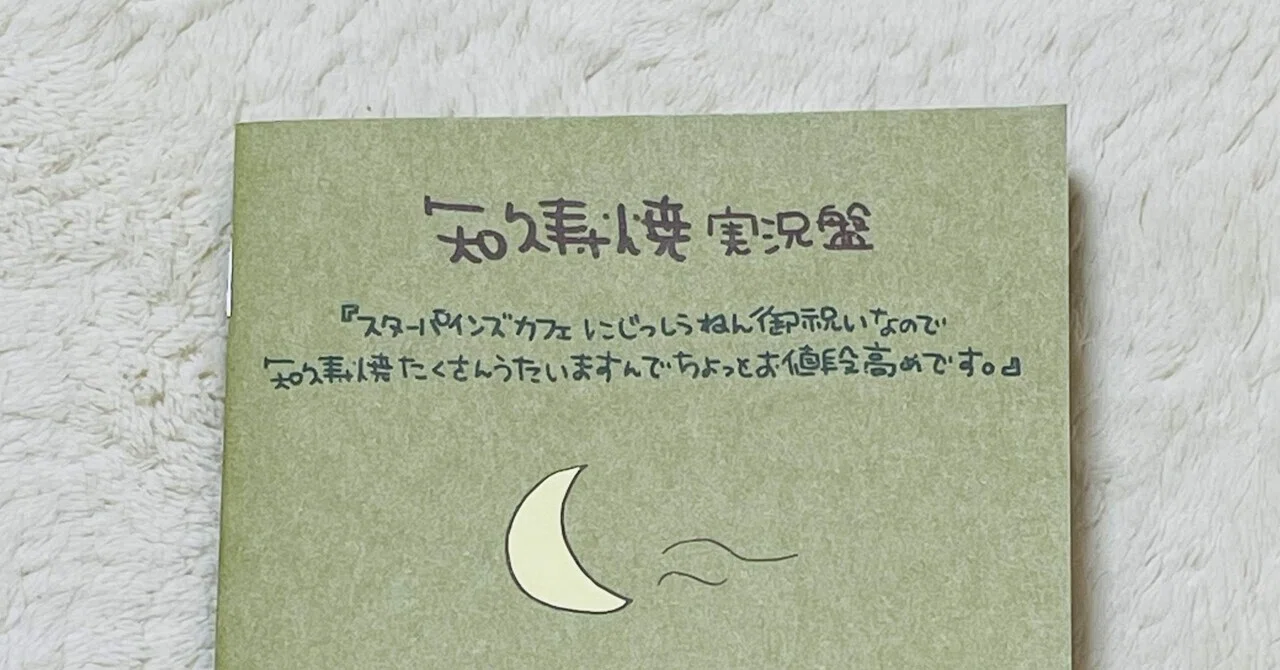 知久寿焼 実況盤
『スターパインズカフェ にじっしうねん御祝いなので
知久寿焼たくさんうたいますんでちょっとお値段高めです。』